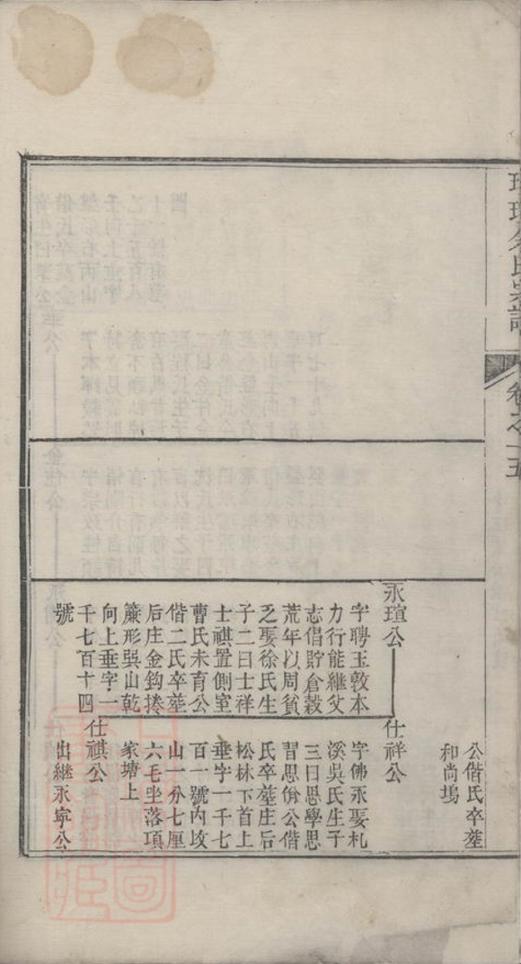 卷之十五
公偕氏卒塟
和尚塢
永瑄公
字聘玉敦本
力行能継父
志倡貯倉穀
荒年以周貧
乏娶徐氏生
子二曰士祥
士祺置側室
曹氏未育公
偕二氏卒塟
后庄金鈎捲
簾形巽山乾
向上垂字一
千七百十四
號
仕祥公
字佛永娶札
溪吳氏生子
三曰思學思
習思俏公偕
氏卒塟庄后
松林下首上
垂字一千七
百一號內坟
山一分七厘
六毛坐落項
家塘上
仕祺公
出継永寧公